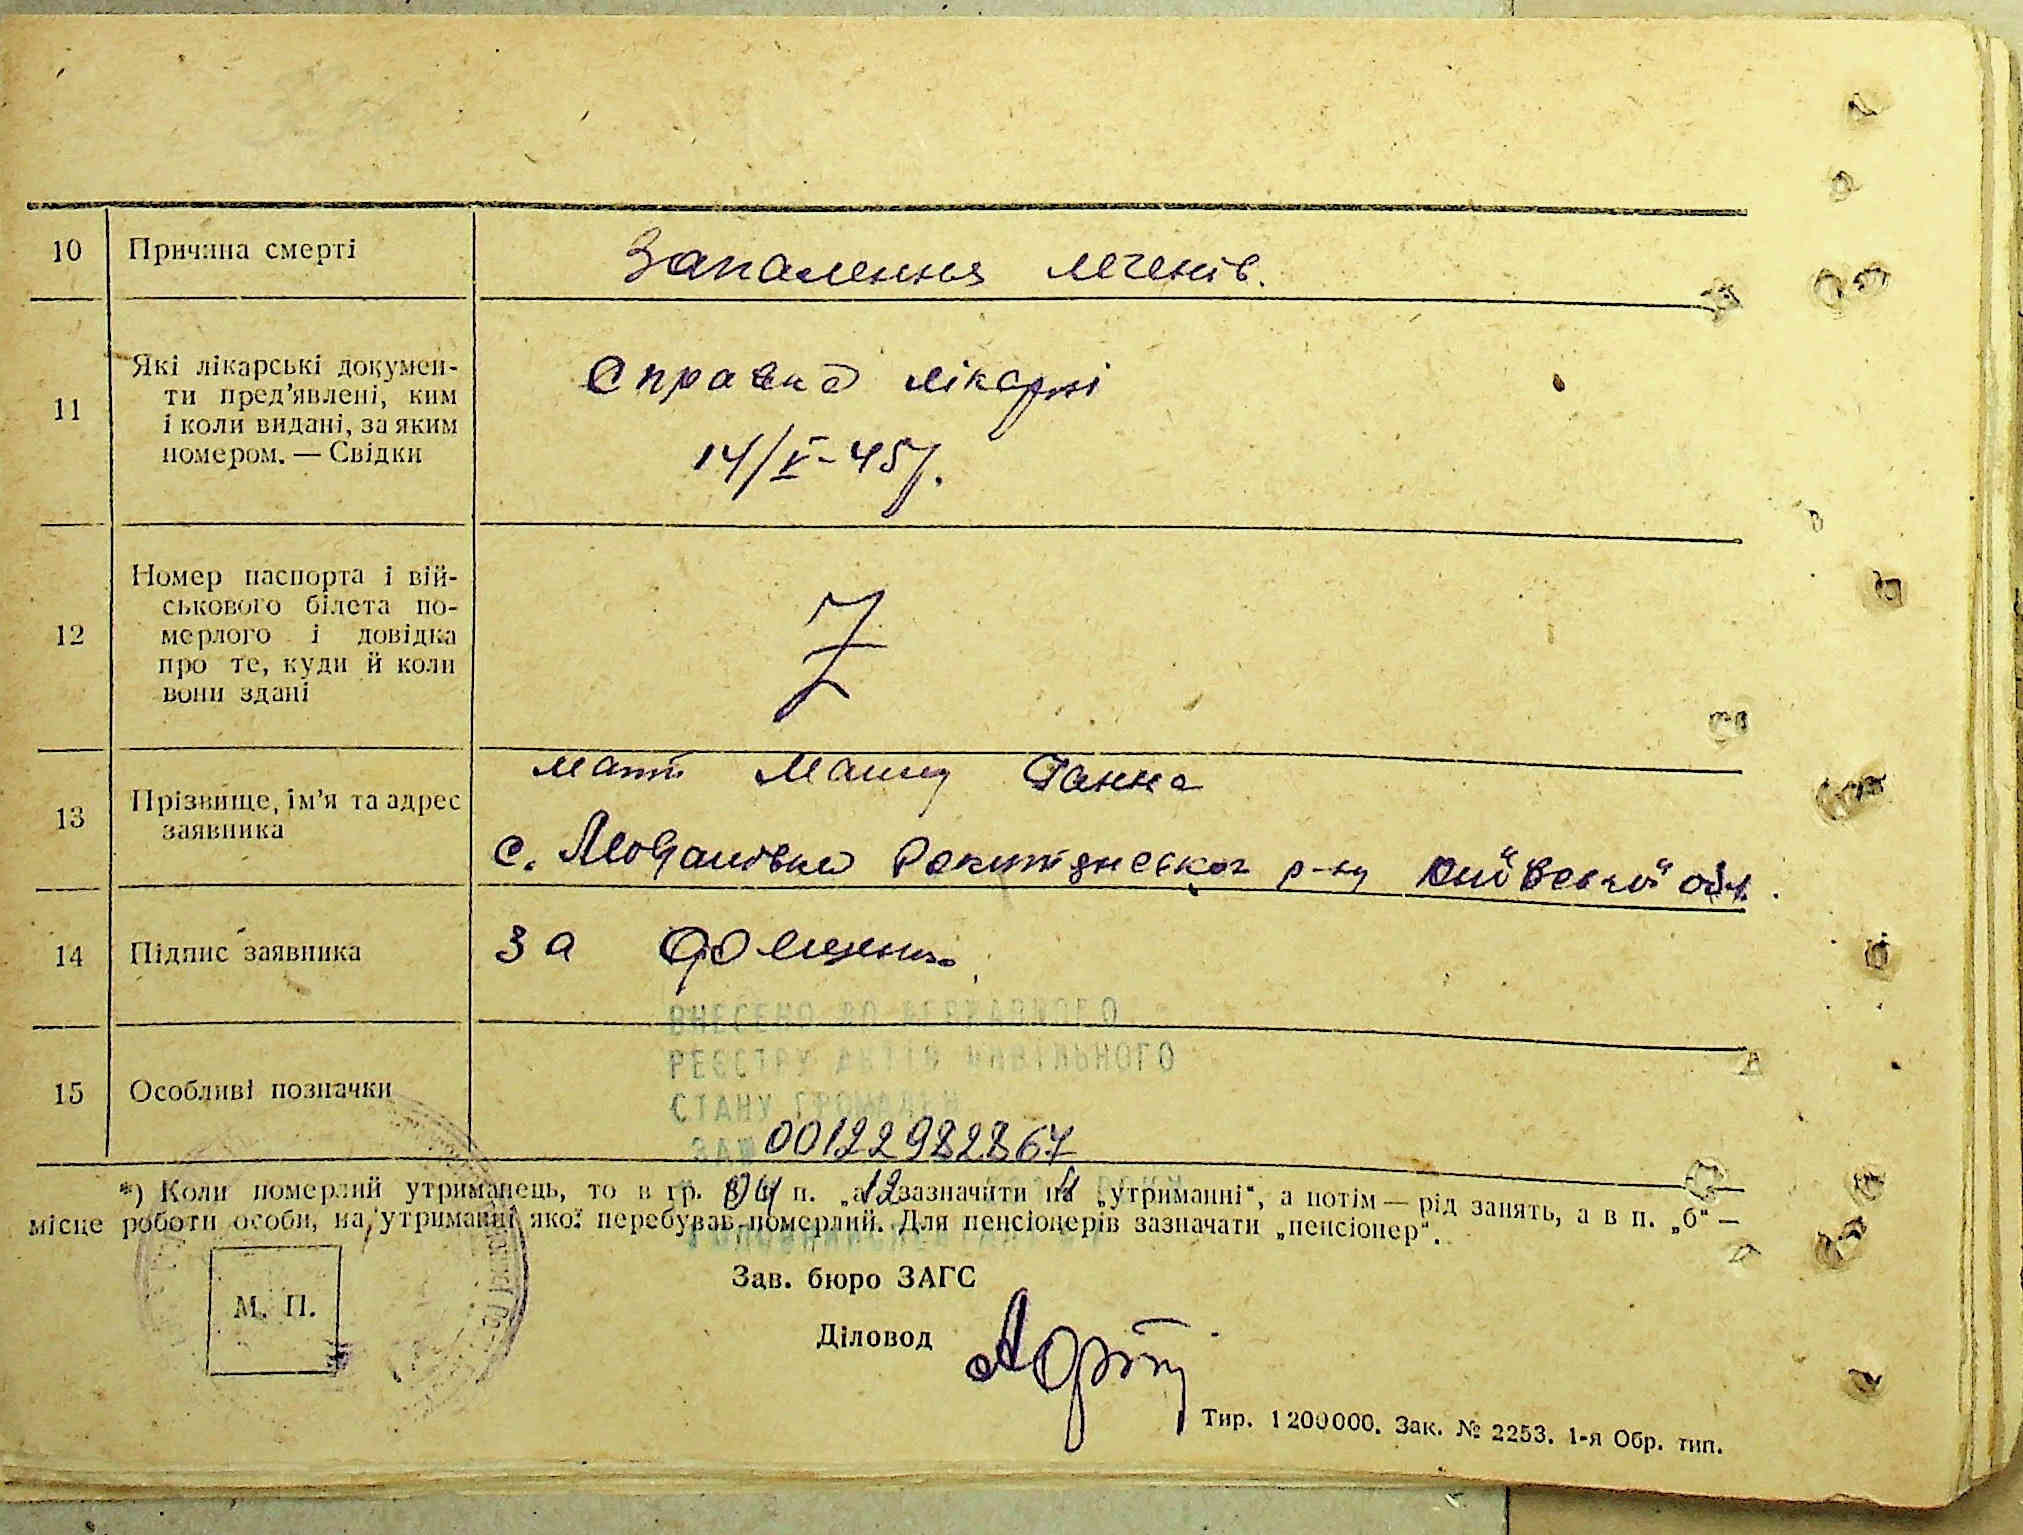 10 Причина смерті Запалення легенів.
11 Які лікарські докумен-
ти пред'явлені, ким
і коли видані, за яким
номером. — Свідки
Справка лікарні
14/V-45р.
12 Номер паспорта і вій-
ськового білета по-
мерлого і довідка
про те, куди й коли
вони здані
Z
13 Прізвище, ім'я та адрес
заявника
мати Ганна
с. Рокитнянського р-ну Київської обл.
14 Підпис заявника За
ВНЕСЕНО ДО ДЕРЖАВНОГО
РЕЄСТРУ АКТІВ ЦИВІЛЬНОГО
СТАНУ ГРОМАДЯН
15 Особливі позначки
00122982867
*) Коли померлий утриманець, то в гр. п. „а" зазначити на „утриманні", а потім — рід занять, а в п. „б" —
місце роботи особи, на утриманні якої перебував померлий. Для пенсіонерів зазначати „пенсіонер".
04 12
М. П.
Зав. бюро ЗАГС
Діловод
Тир. 1200000. Зак. № 2253. 1-я Обр. тип.